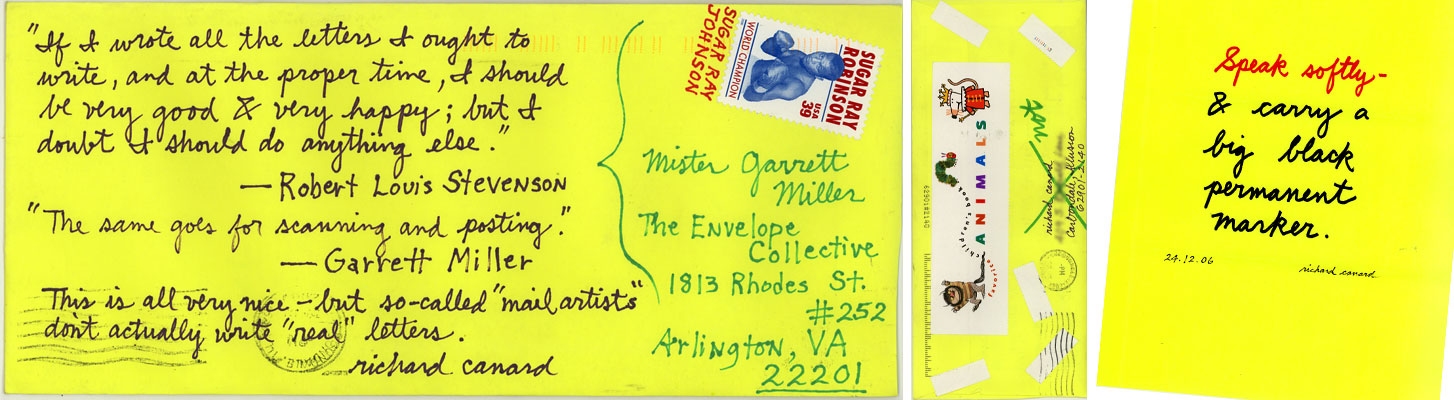 "If I wrote all the letters I ought to
write, and at the proper time, I should
be very good & very happy; but I
doubt I should do anything else."
—Robert Louis Stevenson
"The same goes for scanning and posting."
—Garrett Miller
This is all very nice – but so-called "mail artists"
don't actually write "real" letters.
richard canard
SUGAR RAY
JOHNSON
WORLD CHAMPION
SUGAR RAY
ROBINSON
USA
39
Mister Garrett
Miller
The Envelope
Collective
1813 Rhodes St.
#252
Arlington, VA
22201
favorite children's book ANIMALS
not
richard canard
Carbondale, Illusion
62901-2140
Speak softly–
& carry a
big black
permanent
marker.
24.12.06
richard canard